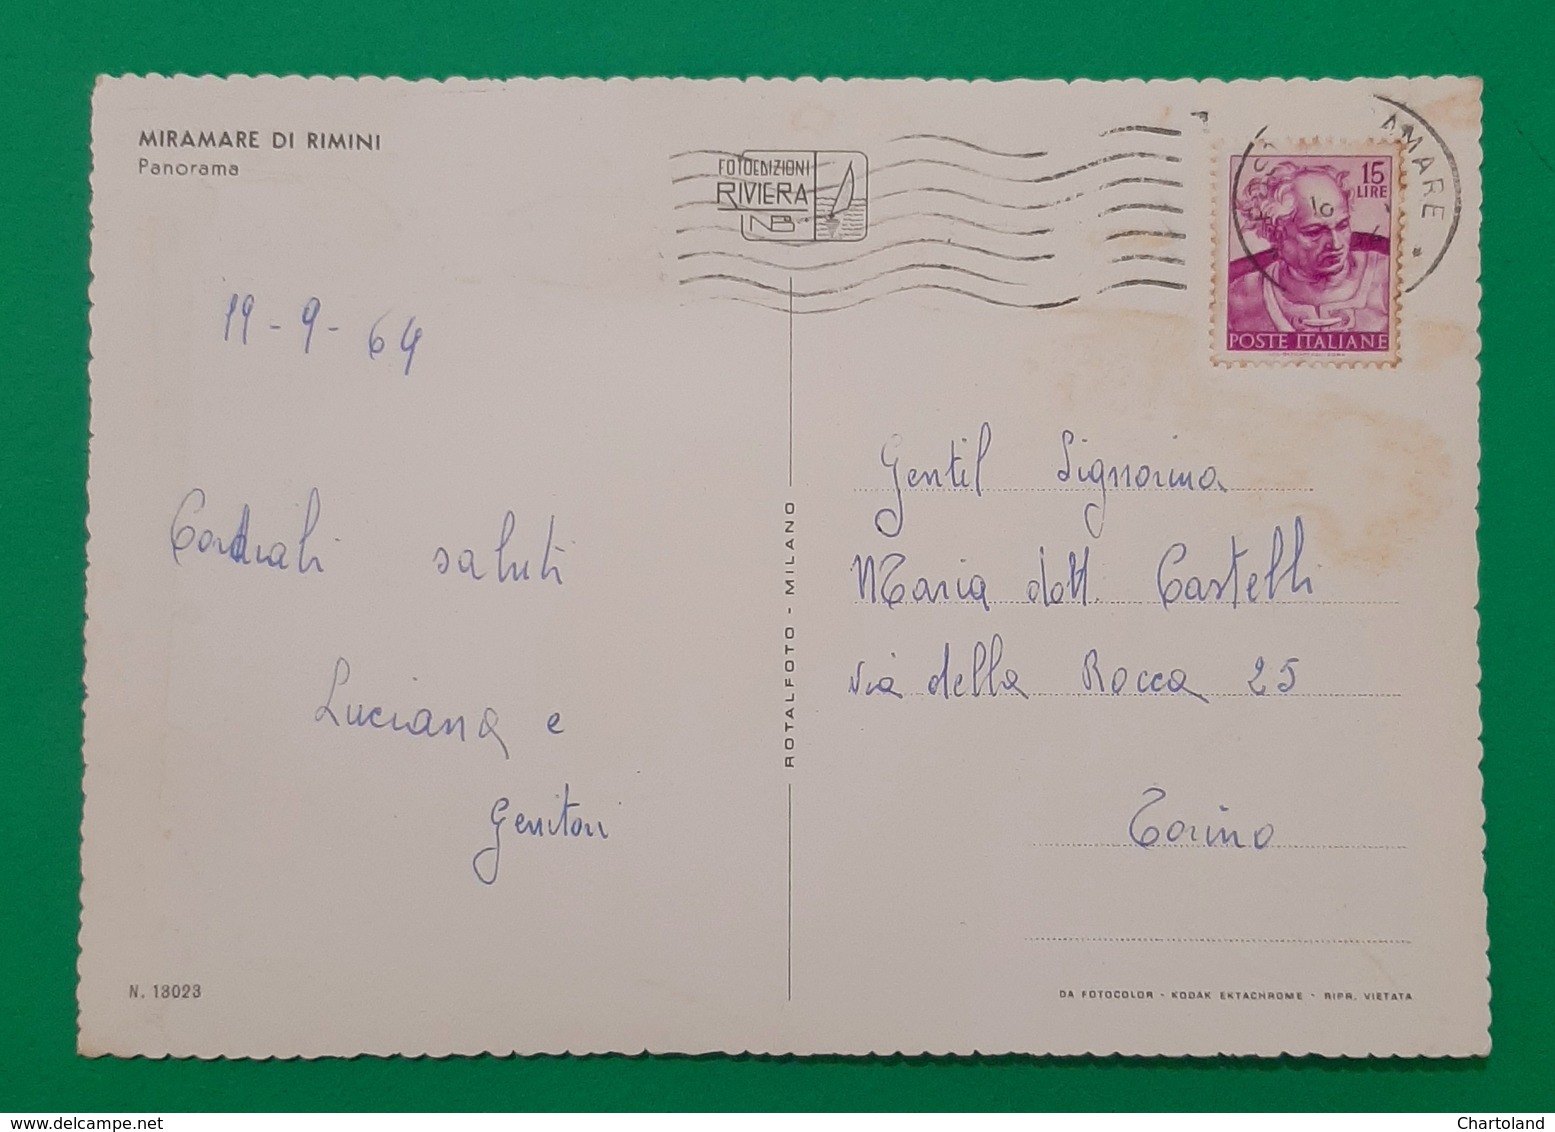 MIRAMARE DI RIMINI
Panorama
FOTOEDIZIONI
RIVIERA
AMARE
15
LIRE
10
POSTE ITALIANE
19-9-64
Cordiali saluti
Luciana e
Genitori
ROTALFOTO - MILANO
Gentil Signorina
Maria dott. Castelli
via della Rocca 25
Torino
N. 13023
DA FOTOCOLOR - KODAK EKTACHROME - RIPR. VIETATA
Chartoland